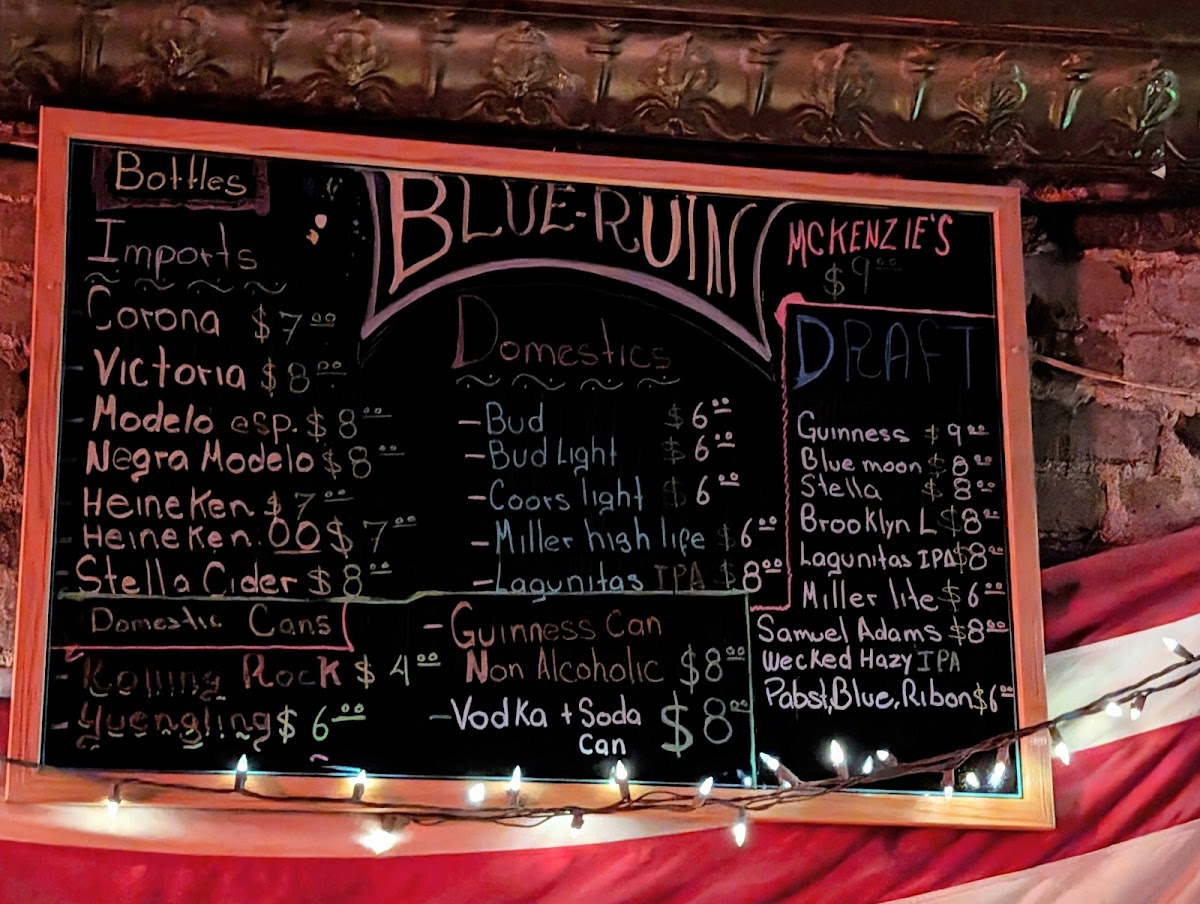 BLUE-RUIN
Bottles
Imports
Corona $7.00
- Victoria $8.00
- Modelo esp. $8.00
- Negra Modelo $8.00
- Heineken $7.00
- Heineken. 00 $7.00
- Stella Cider $8.00
Domestics
- Bud $6.00
- Bud Light $6.00
- Coors light $6.00
- Miller high life $6.00
- Lagunitas IPA $8.00
Domestic Cans
- Rolling Rock $4.00
- Yuengling $6.00
- Guinness Can
Non Alcoholic $8.00
- Vodka + Soda $8.00
can
MCKENZIE'S
$9.00
DRAFT
Guinness $9.00
Blue moon $8.00
Stella $8.00
Brooklyn L $8.00
Lagunitas IPA $8.00
Miller lite $6.00
Samuel Adams $8.00
Wecked Hazy IPA
Pabst, Blue, Ribon $6.00